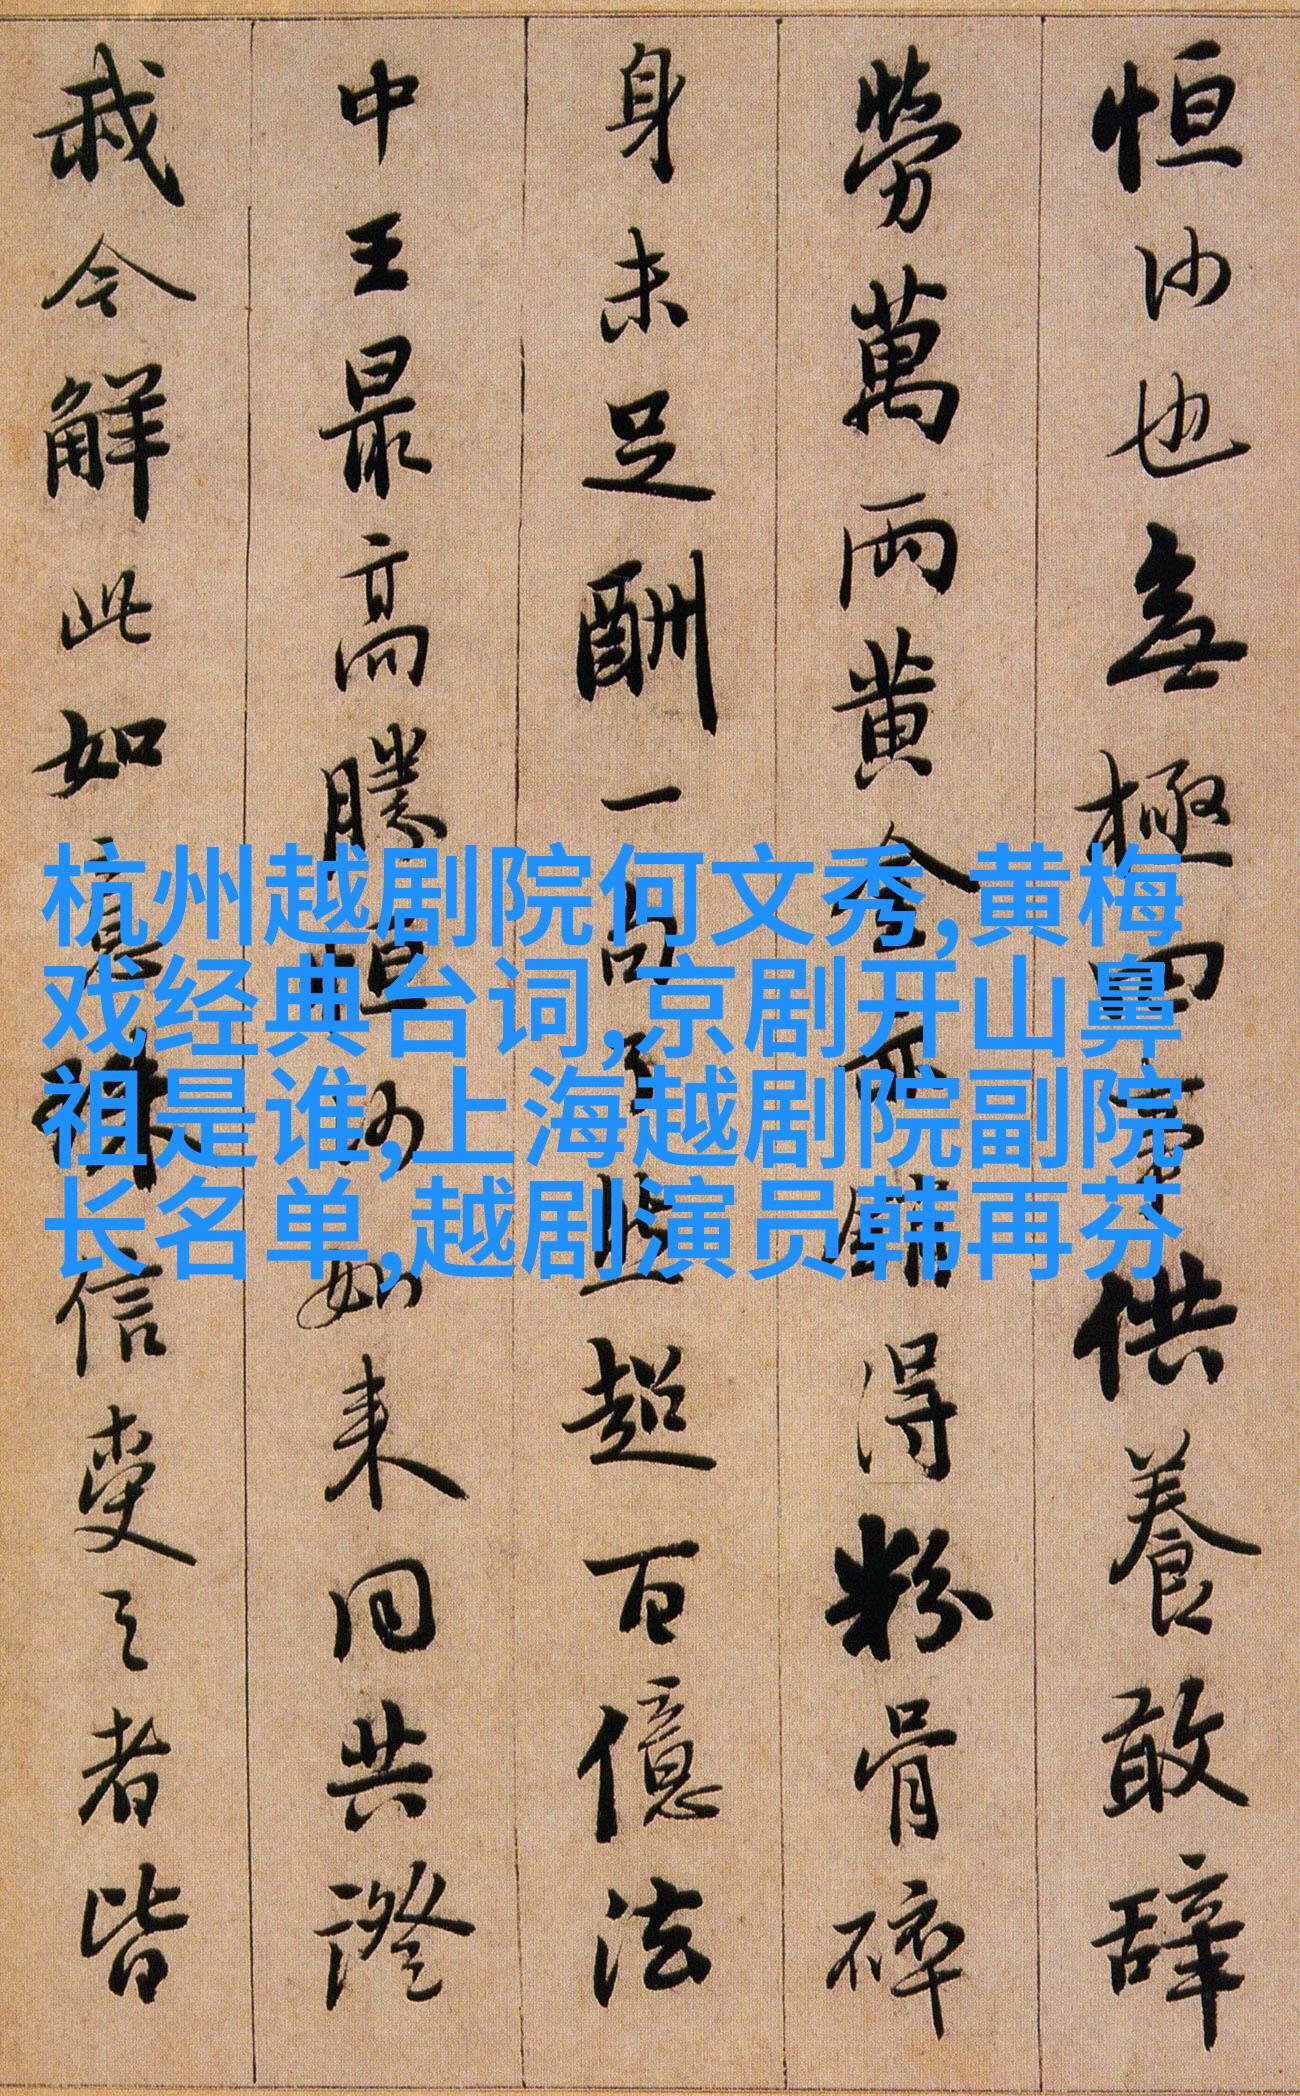 恒沙也無極四事供養敢辞
勞萬兩黄金亦銷得粉骨碎
身未足酬一句了然超百億法
中王最高勝恒沙如来同共證
我今解此如意珠信受之者皆
杭州越剧院何文秀,黄梅
戏经典台词,京剧开山鼻
祖是谁,上海越剧院副院
长名单,越剧演员韩再芬